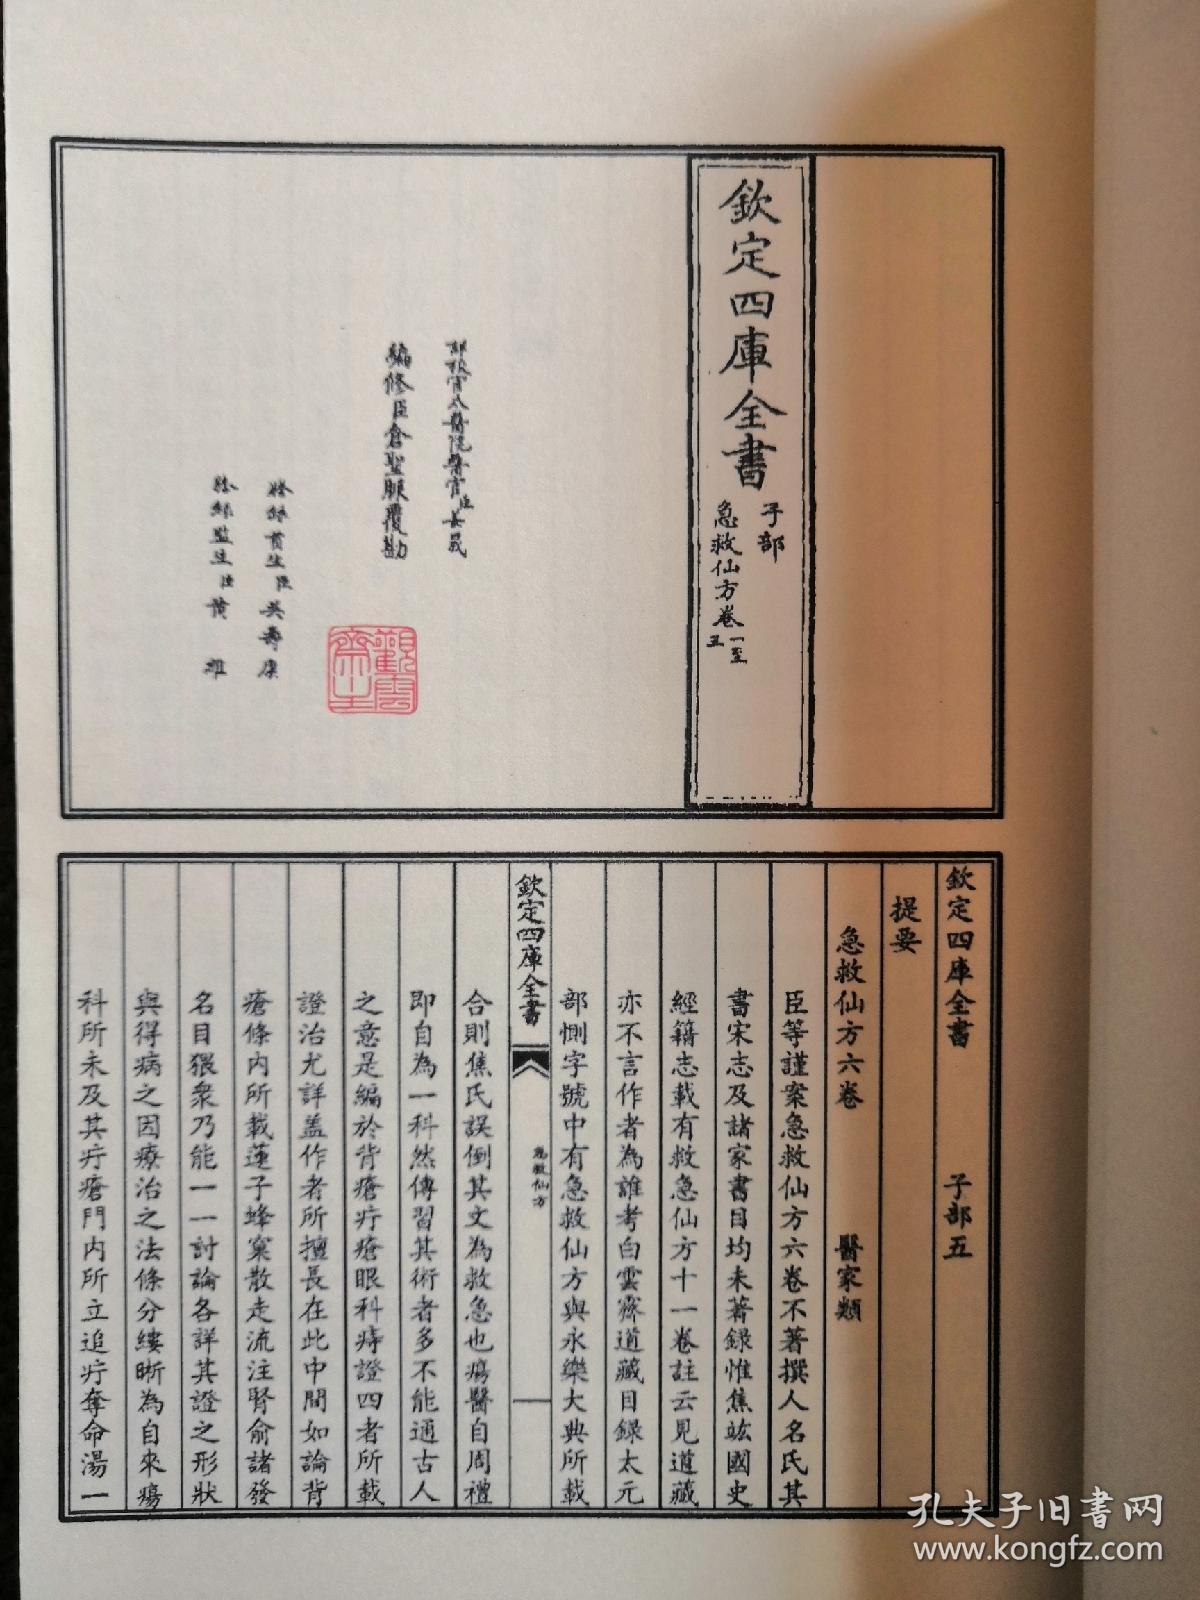 欽定四庫全書
子部
急救仙方卷一至五
編修臣倉聖脈覆勘
欽定四庫全書 子部五
提要 醫家類
急救仙方六卷
臣等謹案急救仙方六卷不著撰人名氏其
書宋志及諸家書目均未著錄惟焦竑國史
經籍志載有救急仙方十一卷註云見道藏
亦不言作者為誰考白雲霽道藏目録太元
部惻字號中有急救仙方與永樂大典所載
欽定四庫全書
急救仙方
一
合則焦氏誤倒其文為救急也瘍醫自周禮
即自為一科然傳習其術者多不能通古人
之意是編於背瘡疔瘡眼科痔證四者所載
證治尤詳蓋作者所擅長在此中間如論背
瘡條内所載蓮子蜂窠散走流注腎俞諸發
名目猥衆乃能一一討論各詳其證之形狀
與得病之因療治之法條分縷晰為自來瘍
科所未及其疔瘡門内所立追疔奪命湯一
孔夫子旧书网
www.kongfz.com